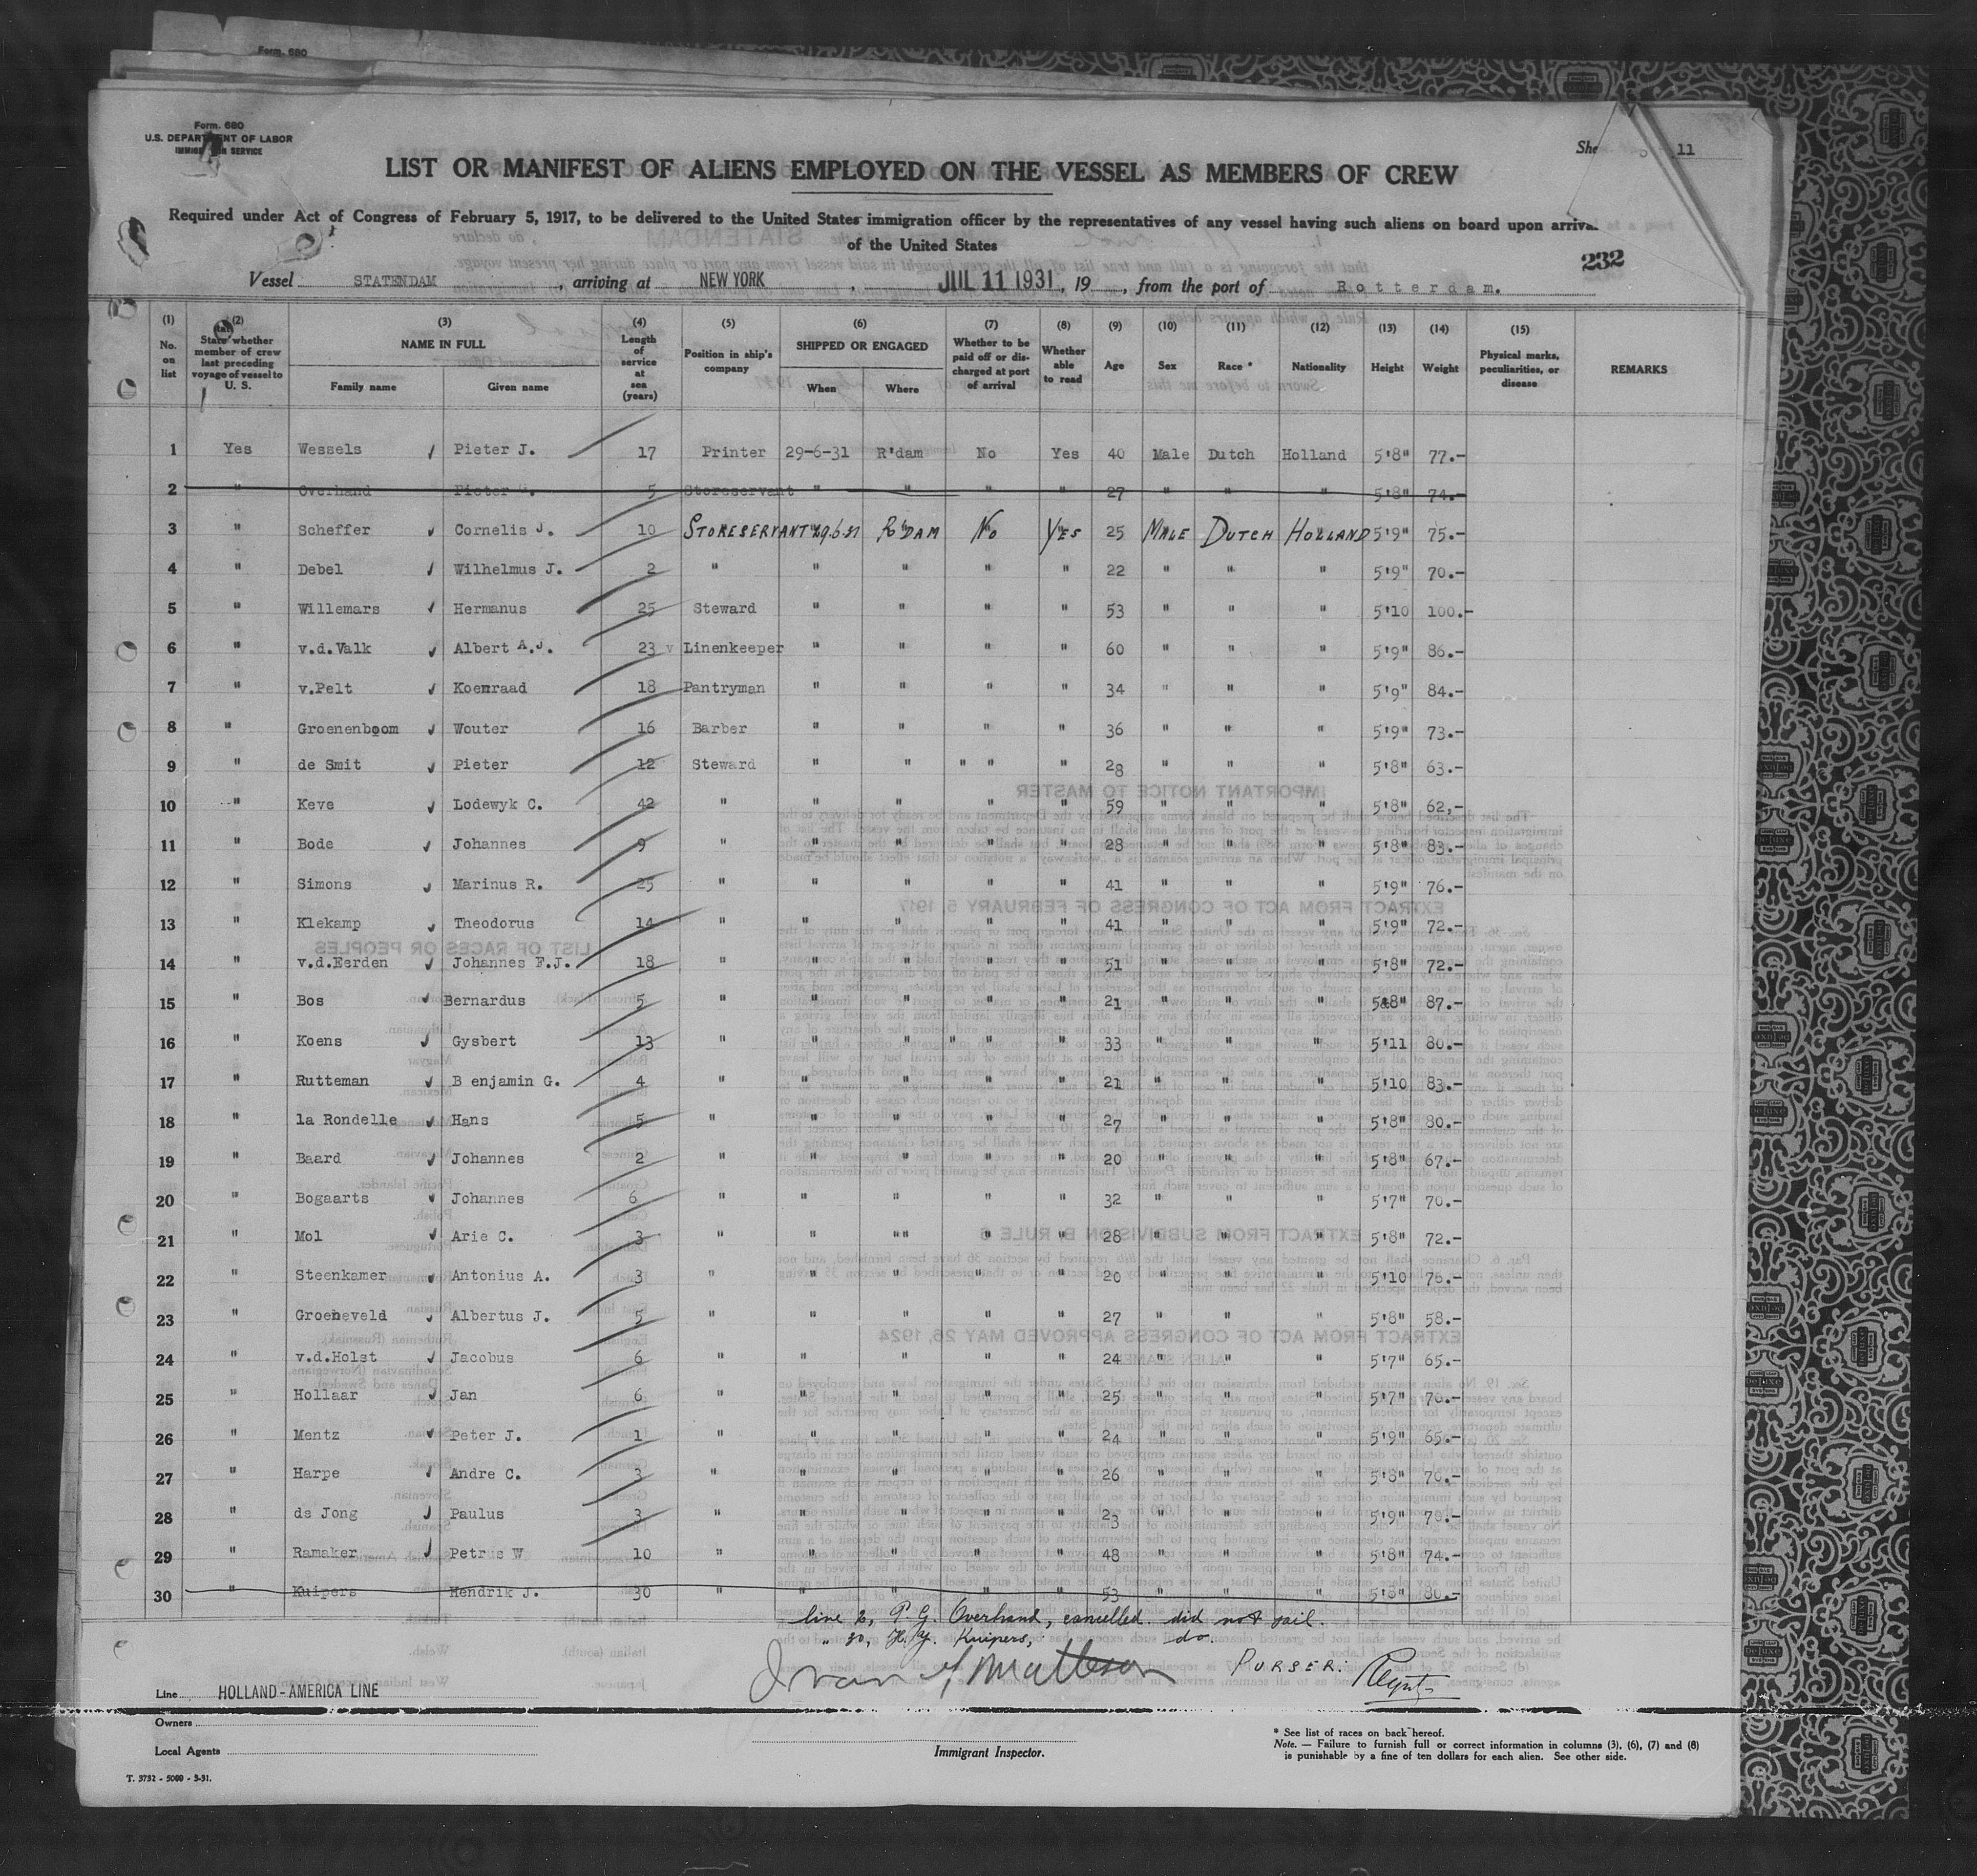 Form. 680
Form. 680
U.S. DEPARTMENT OF LABOR
IMMIGRATION SERVICE
11
LIST OR MANIFEST OF ALIENS EMPLOYED ON THE VESSEL AS MEMBERS OF CREW
Required under Act of Congress of February 5, 1917, to be delivered to the United States immigration officer by the representatives of any vessel having such aliens on board upon arrival
of the United States
232
Vessel STATENDAM, arriving at NEW YORK, JUL 11 1931, 19 , from the port of Rotterdam.
(1) No. on list (2) State whether member of crew last preceding voyage of vessel to U. S. (3) NAME IN FULL Family name Given name (4) Length of service at sea (years) (5) Position in ship's company (6) SHIPPED OR ENGAGED When Where (7) Whether to be paid off or discharged at port of arrival (8) Whether able to read (9) Age (10) Sex (11) Race * (12) Nationality (13) Height (14) Weight (15) Physical marks, peculiarities, or disease REMARKS
1 Yes Wessels Pieter J. 17 Printer 29-6-31 R'dam No Yes 40 Male Dutch Holland 5'8" 77.-
2 " Overhand Pieter G. 5 Storeservant " " " " 27 " " " 5'8" 74.-
3 " Scheffer Cornelis J. 10 STORESERVANT 29.6.31 R'DAM No YES 25 MALE DUTCH HOLLAND 5'9" 75.-
4 " Debel Wilhelmus J. 2 " " " " " 22 " " " 5'9" 70.-
5 " Willemars Hermanus 25 Steward " " " " 53 " " " 5'10 100.-
6 " v.d.Valk Albert A.J. 23 v Linenkeeper " " " " 60 " " " 5'9" 86.-
7 " v.Pelt Koenraad 18 Pantryman " " " " 34 " " " 5'9" 84.-
8 " Groenenboom Wouter 16 Barber " " " " 36 " " " 5'9" 73.-
9 " de Smit Pieter 12 Steward " " " " " 28 " " " 5'8" 63.-
10 " Keve Lodewyk C. 42 " " " " " 59 " " " 5'8" 62,-
11 " Bode Johannes 9 " " " " " 28 " " " 5'8" 83.-
12 " Simons Marinus R. 25 " " " " " 41 " " " 5'9" 76.-
13 " Klekamp Theodorus 14 " " " " " 41 " " " 5'9" 72.-
14 " v.d.Eerden Johannes F.J. 18 " " " " " 51 " " " 5'8" 72.-
15 " Bos Bernardus 5 " " " " " 21 " " " 5&8" 87.-
16 " Koens Gysbert 13 " " " " " " 33 " " " 5'11 80.-
17 " Rutteman B enjamin G. 4 " " " " " 21 " " " 5'10 83.-
18 " la Rondelle Hans 5 " " " " " 27 " " " 5'8" 80.-
19 " Baard Johannes 2 " " " " " 20 " " " 5'8" 67.-
20 " Bogaarts Johannes 6 " " " " " 32 " " " 5'7" 70.-
21 " Mol Arie C. 3 " " "" " " 28 " " " 5'8" 72.-
22 " Steenkamer Antonius A. 3 " " " " " 20 " " " 5'10 76.-
23 " Groeneveld Albertus J. 5 " " " " " 27 " " " 5'8" 58.-
24 " v.d.Holst Jacobus 6 " " " " " 24 " " " 5'7" 65.-
25 " Hollaar Jan 6 " " " " " 25 " " " 5'7" 70.-
26 " Mentz Peter J. 1 " " " " " 24 " " " 5'9" 65.-
27 " Harpe Andre C. 3 " " " " " 26 " " " 5'8" 70.-
28 " de Jong Paulus 3 " " " " " 23 " " " 5'9" 70.-
29 " Ramaker Petrus W 10 " " " " " 48 " " " 5'8" 74.-
30 " Kuipers Hendrik J. 30 " " " " " 53 " " " 5'8" 80.-
line 2, P. G. Overhand, cancelled did not sail.
" 30, H. J. Kuipers, do.
PURSER:
Line HOLLAND-AMERICA LINE
Owners
Local Agents
Immigrant Inspector.
* See list of races on back hereof.
Note. — Failure to furnish full or correct information in columns (3), (6), (7) and (8)
is punishable by a fine of ten dollars for each alien. See other side.
T. 3732 - 5000 - 3-31.